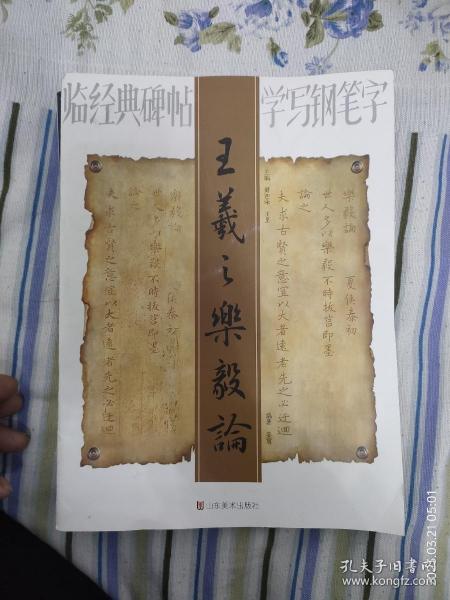 临经典碑帖 学写钢笔字
王羲之樂毅論
主编
樂毅論 夏侯泰初
世人多以樂毅不時拔莒即墨
論之
夫求古賢之意宜以大者遠者先之必迂迴
樂毅論
世人多以樂毅不時拔莒即墨
論之
夫求古賢之意宜以大者遠者先之必迂迴
山东美术出版社
2023.03.21 05:01
孔夫子旧书网
www.kongfz.com